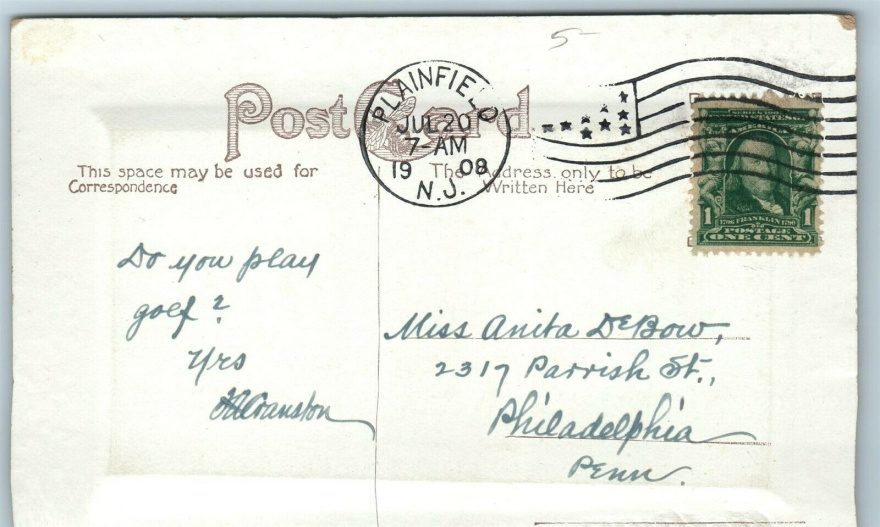 5-
Post Card
PLAINFIELD
JUL 20
7-AM
19 08
N.J.
This space may be used for
Correspondence
The Address only to be
Written Here
1 1706 FRANKLIN 1790 1
POSTAGE
ONE CENT
Do you play
golf?
Yrs
Cranston
Miss Anita DeBow,
2317 Parrish St.,
Philadelphia
Penn.